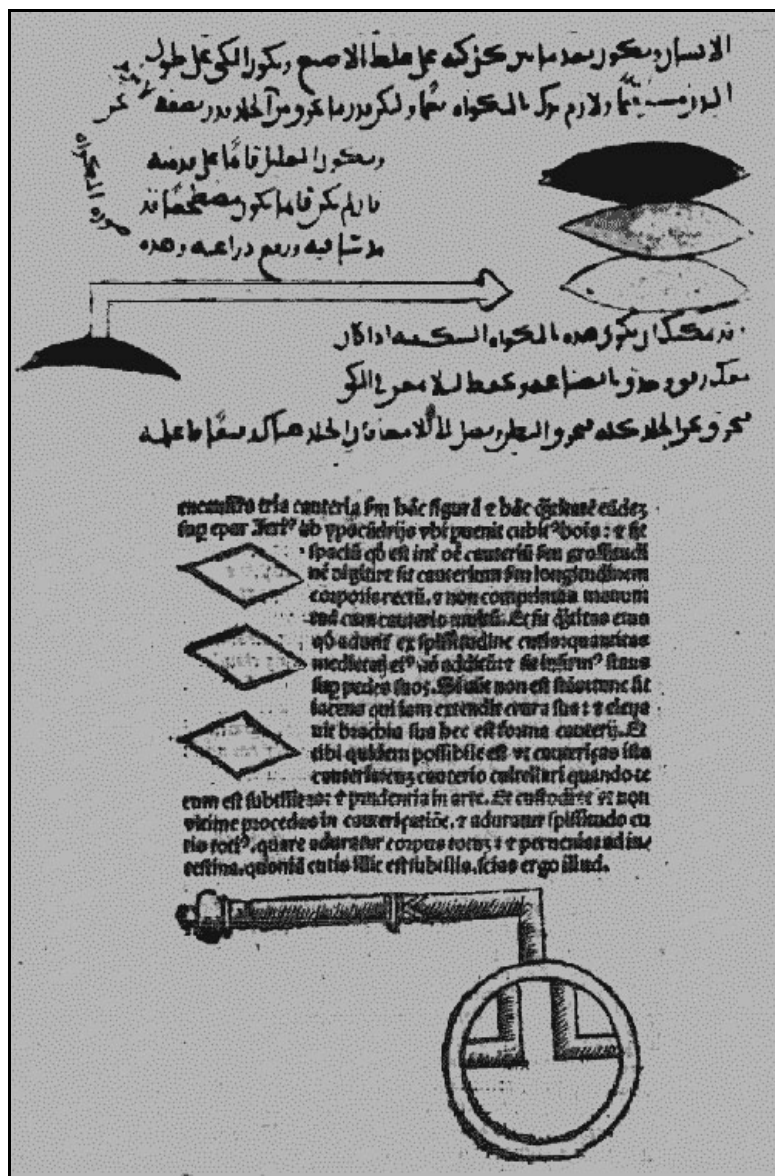 الانسان ويكون بعد ما بين كل كية على غلظ الاصبع ويكون الكى على طول
البدن ولازم يدك بالمكواه وليكن قدر ما تحرق من الجلد قدر نصفه
ويكون العليل قائما على قدميه
فان لم يكن قائما يكون مضطجعا قد
مد ساقيه ورفع ذراعيه وهذه
صورة المكواه
قد يمكنك ان تكوى هذه بالمكواه السكينية اذا كان
معك رفق وحذق بالصناعة وتحفظ ليلا تمعن فى الكى
فتحرق الجلد كله فيحرق البطن وتصل الى الامعا فان الجلد هناك رقيق فاعلمه
tria cauteria fm hāc figurā ⁊ hāc
sup epar
spaciū qđ est int̄ oē cauteriū fm grossitudi
nē digiti ⁊ sit cauterium fm longitudinem
corporis rectū, ⁊ non comprimas manum
tuā cum cauterio multū. Et sit
qđ adurit ex spissitudine cutis: quantitas
sup pedes suos. non est
iacens qui iam extendit crura sua: ⁊ eleua
uit brachia sua hec est forma cauterij. Et
tibi quidem possibile est vt cauteriçes ista
cauteria cuȝ cauterio cultellari quando te
cum est subtilitas: ⁊ prudentia in arte. Et custodire vt non
vltime procedas in cauteriçatiōe, ⁊ aduratur spissitudo cu
tis totiꝰ, quare aduratur corpus totuȝ: ⁊ perueniat ad in⸗
testina, quoniā cutis illic est subtilis, scias ergo illud.